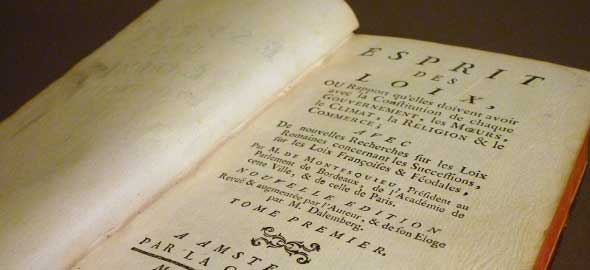 ESPRIT
DES
LOIX,
OU Rapport qu'elles doivent avoir
avec la Constitution de chaque
GOUVERNEMENT, les MŒURS,
le CLIMAT, la RELIGION & le
COMMERCE;
AVEC
De nouvelles Recherches sur les Loix
Romaines concernant les Successions,
sur les Loix Françoises & Féodales,
Par M. DE MONTESQUIEU, Président au
Parlement de Bordeaux, de l'Académie de
cette Ville, & de celle de Paris.
NOUVELLE EDITION
Revuë & augmentée par l'Auteur, & de son Eloge
par M. Dalemberg.
TOME PREMIER.
A AMSTE
PAR LA C
M